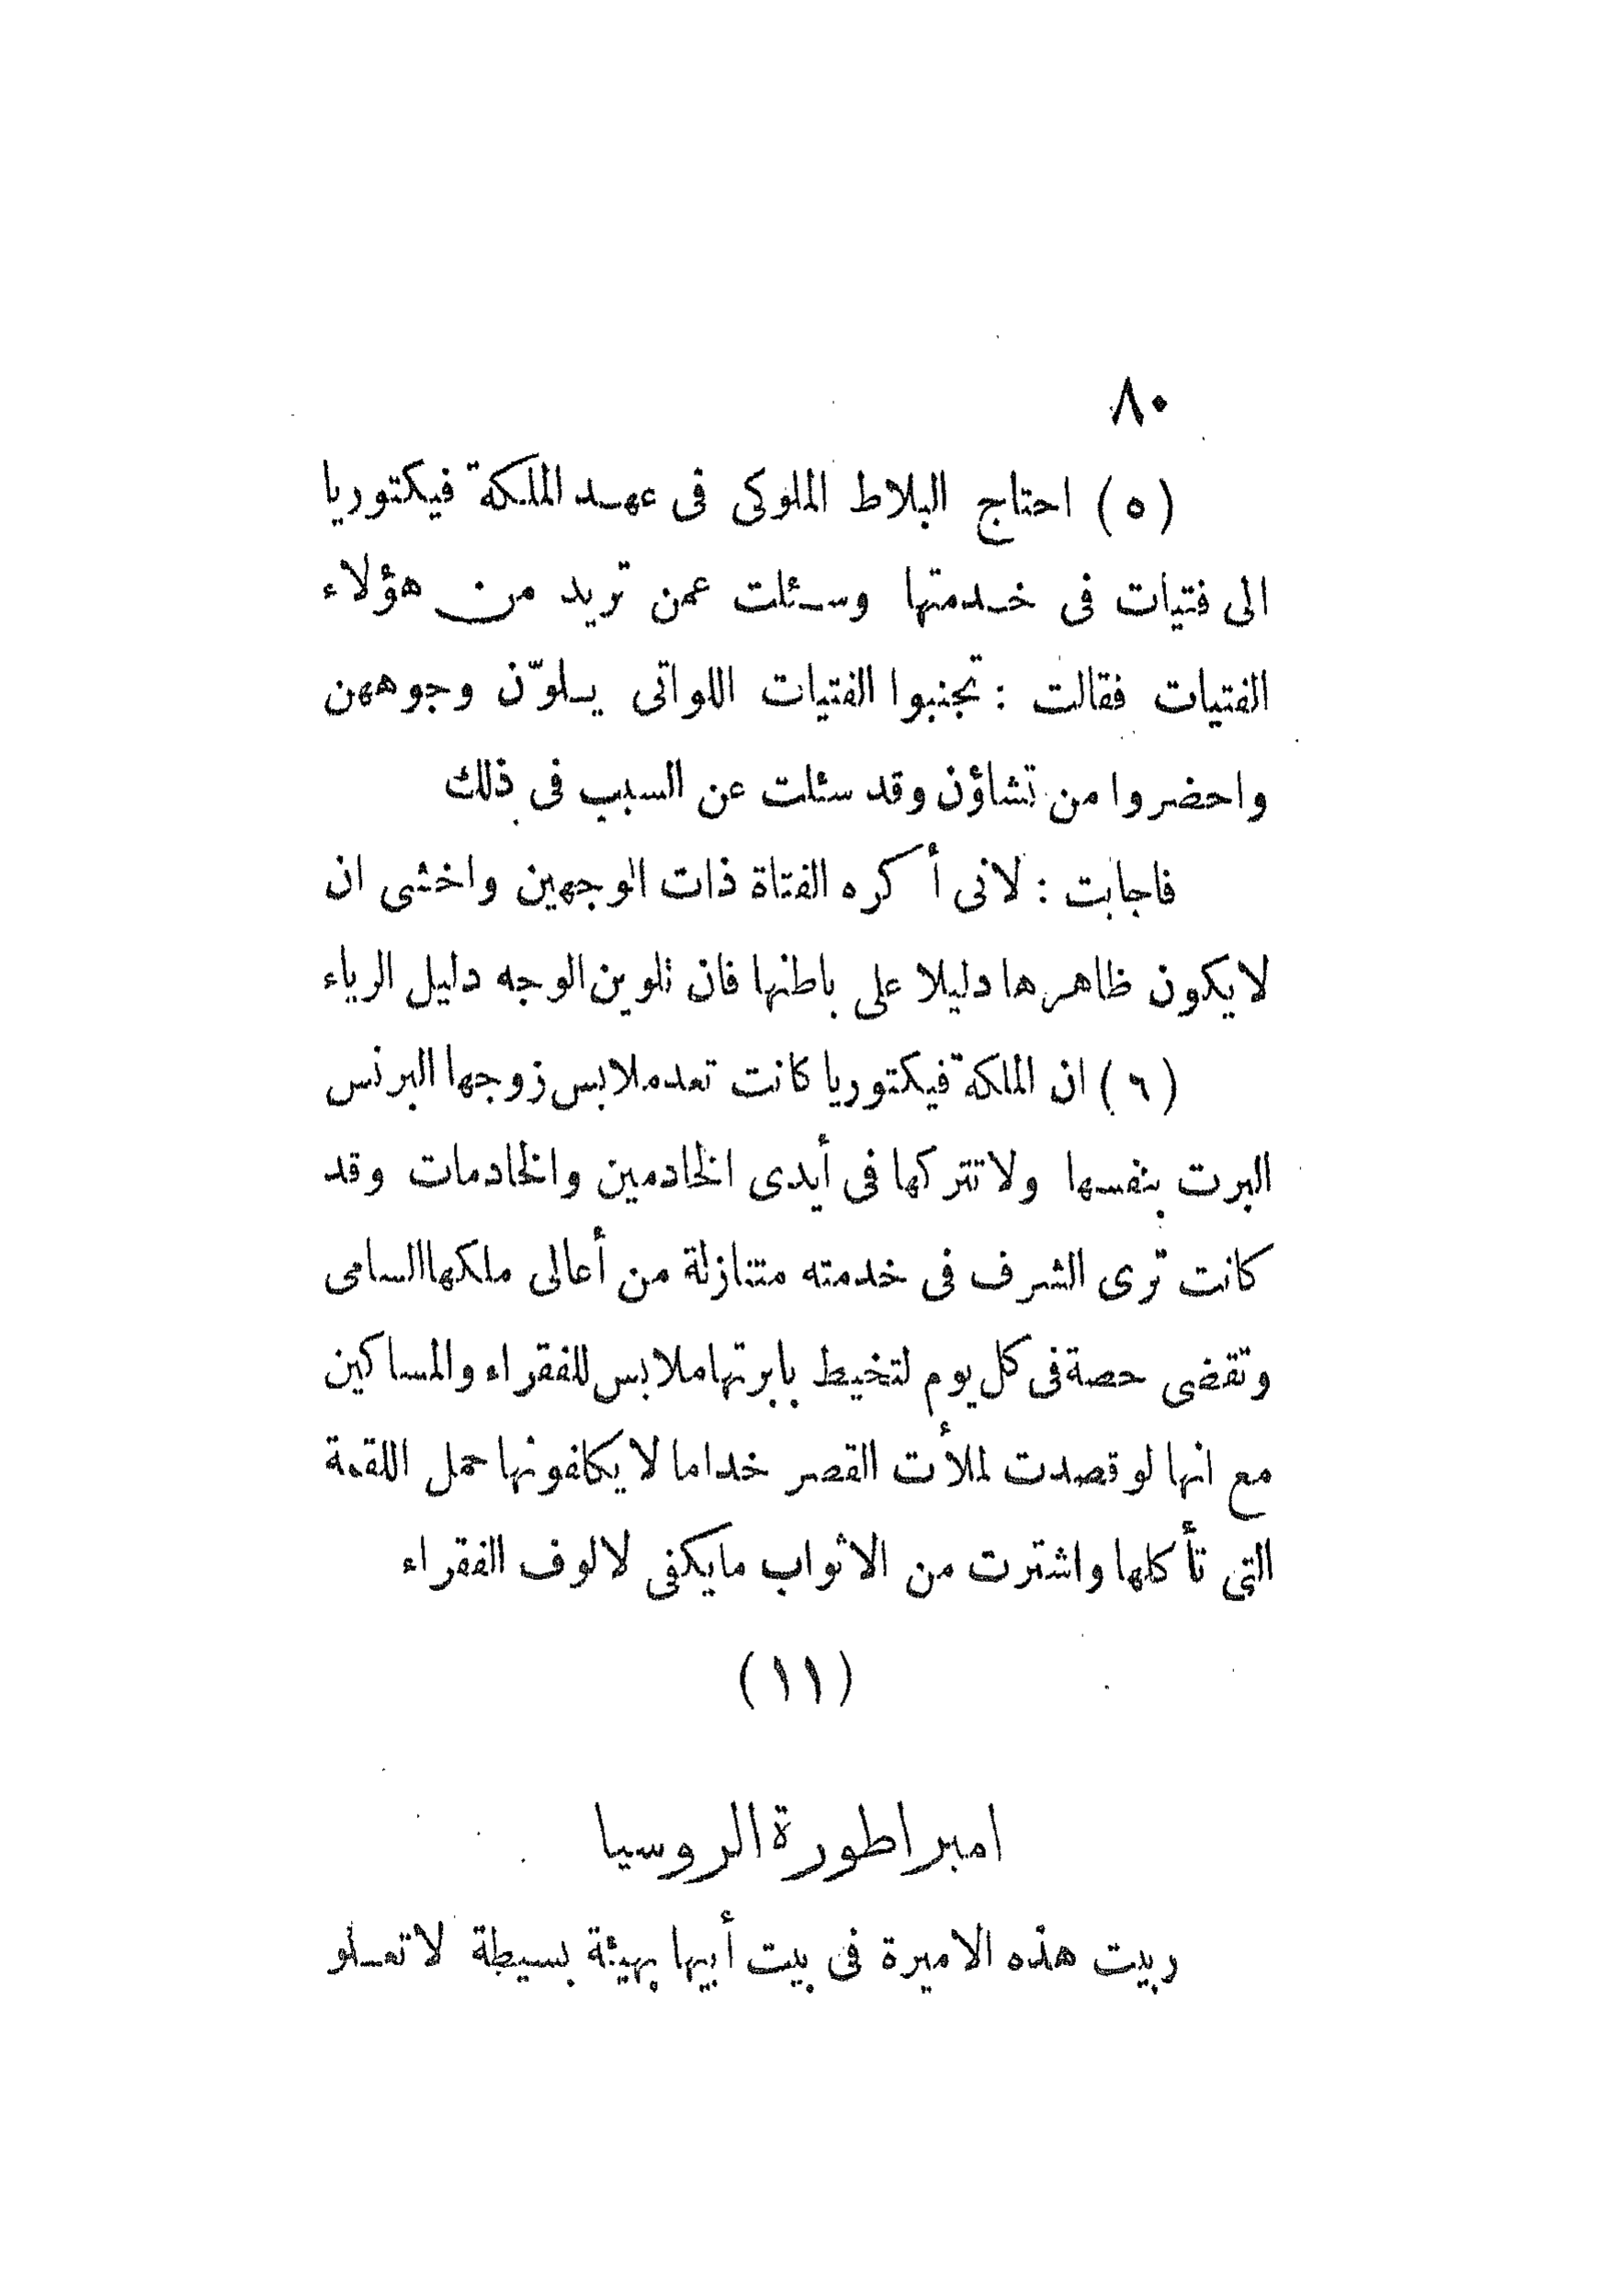 ٨٠
(٥) احتاج البلاط الملوكى فى عهد الملكة فيكتوريا
الى فتيات فى خدمتها وسئلت عمن تريد من هؤلاء
الفتيات فقالت : تجنبوا الفتيات اللواتى يلوّن وجوههن
واحضروا من تشاؤن وقد سئلت عن السبب فى ذلك
فاجابت : لانى أكره الفتاة ذات الوجهين واخشى ان
لايكون ظاهرها دليلا على باطنها فان تلوين الوجه دليل الرياء
(٦) ان الملكة فيكتوريا كانت تعد ملابس زوجها البرنس
البرت بنفسها ولا تتركها فى أيدى الخادمين والخادمات وقد
كانت ترى الشرف فى خدمته متنازلة من أعالى ملكها السامى
وتقضى حصة فى كل يوم لتخيط بابرتها ملابس للفقراء والمساكين
مع انها لو قصدت لملأت القصر خداما لا يكلفونها حمل اللقمة
التى تأكلها واشترت من الاثواب مايكفى لالوف الفقراء
(١١)
امبراطورة الروسيا
ربيت هذه الاميرة فى بيت أبيها بهيئة بسيطة لا تعلو